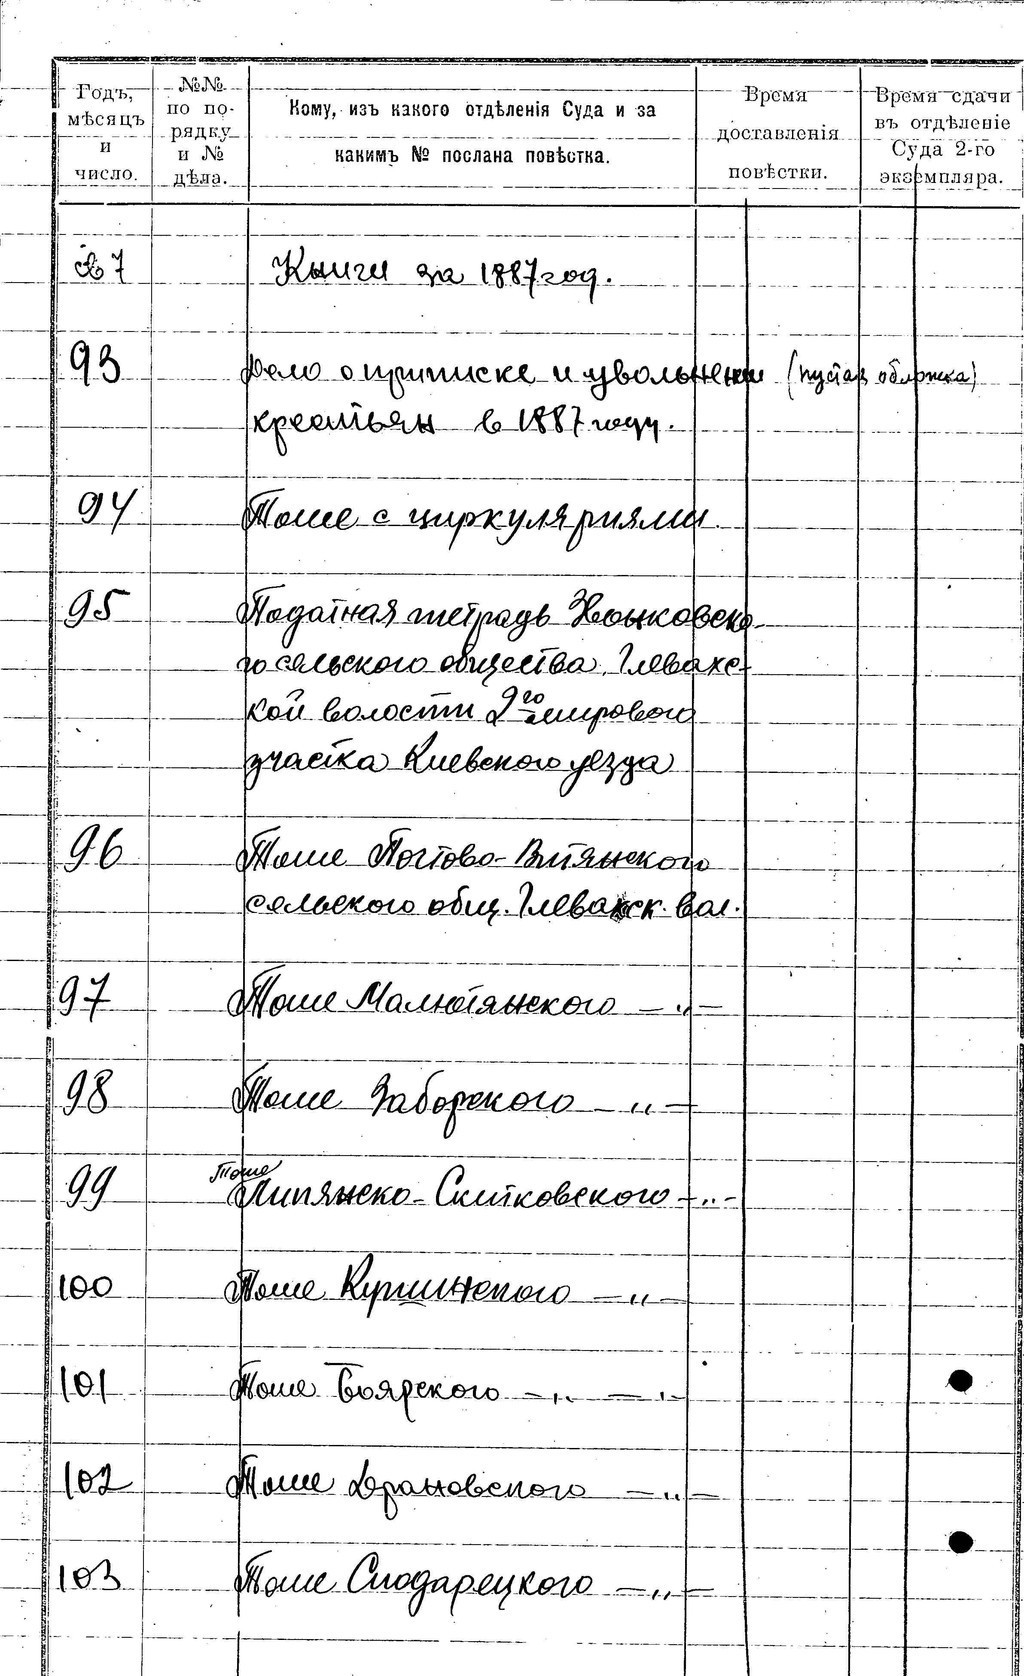 Годъ, мѣсяцъ и число.
№№ по по-рядку и № дѣла.
Кому, изъ какого отдѣленія Суда и за
какимъ № послана повѣстка.
Время
доставленія
повѣстки.
Время сдачи
въ отдѣленіе
Суда 2-го
экземпляра.
7 Книги за 1887 год.
93 Дело о приписке и увольнении (пустая обложка)
крестьян в 1887 году.
94 Тоже с циркулярами
95 Податная тетрадь Хотовско-
го сельского общества, Глевахс-
кой волости 2го мирового
участка Киевского уезда
96 Тоже Почтово-Витянского
сельского общ. Глевахск. вол.
97 Тоже Малютянского — „ —
98 Тоже Заборского — „ —
99 Тоже
Липянско-Скитковского — „ —
100 Тоже — „ —
101 Тоже Боярского — „ — — „ —
102 Тоже — „ —
103 Тоже Сподарецкого — „ —